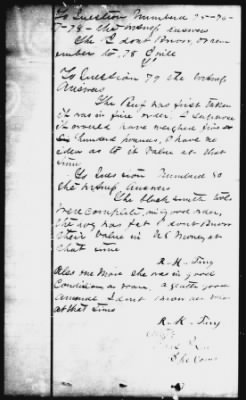 To Question Numberd 75-76-
7-78- the witness answers
The I dont Know, or rem
ember to .78 I will
To Question 79 the witness
Answers
The Beef was first taken
it was in fine order. I
it would have weighed five or
Six Hundred pounds, I have no
idea as to it value at that
time
To Question Numberd 80
the witness answers
The black smith tools
were complete, in good order,
The hog was fat I dont Know
their value in U.S. Money at
that time
R. K. 
Also one Mare she was in good
Condition a roan, a good
animal I dont Know her value
at that time
R. K.